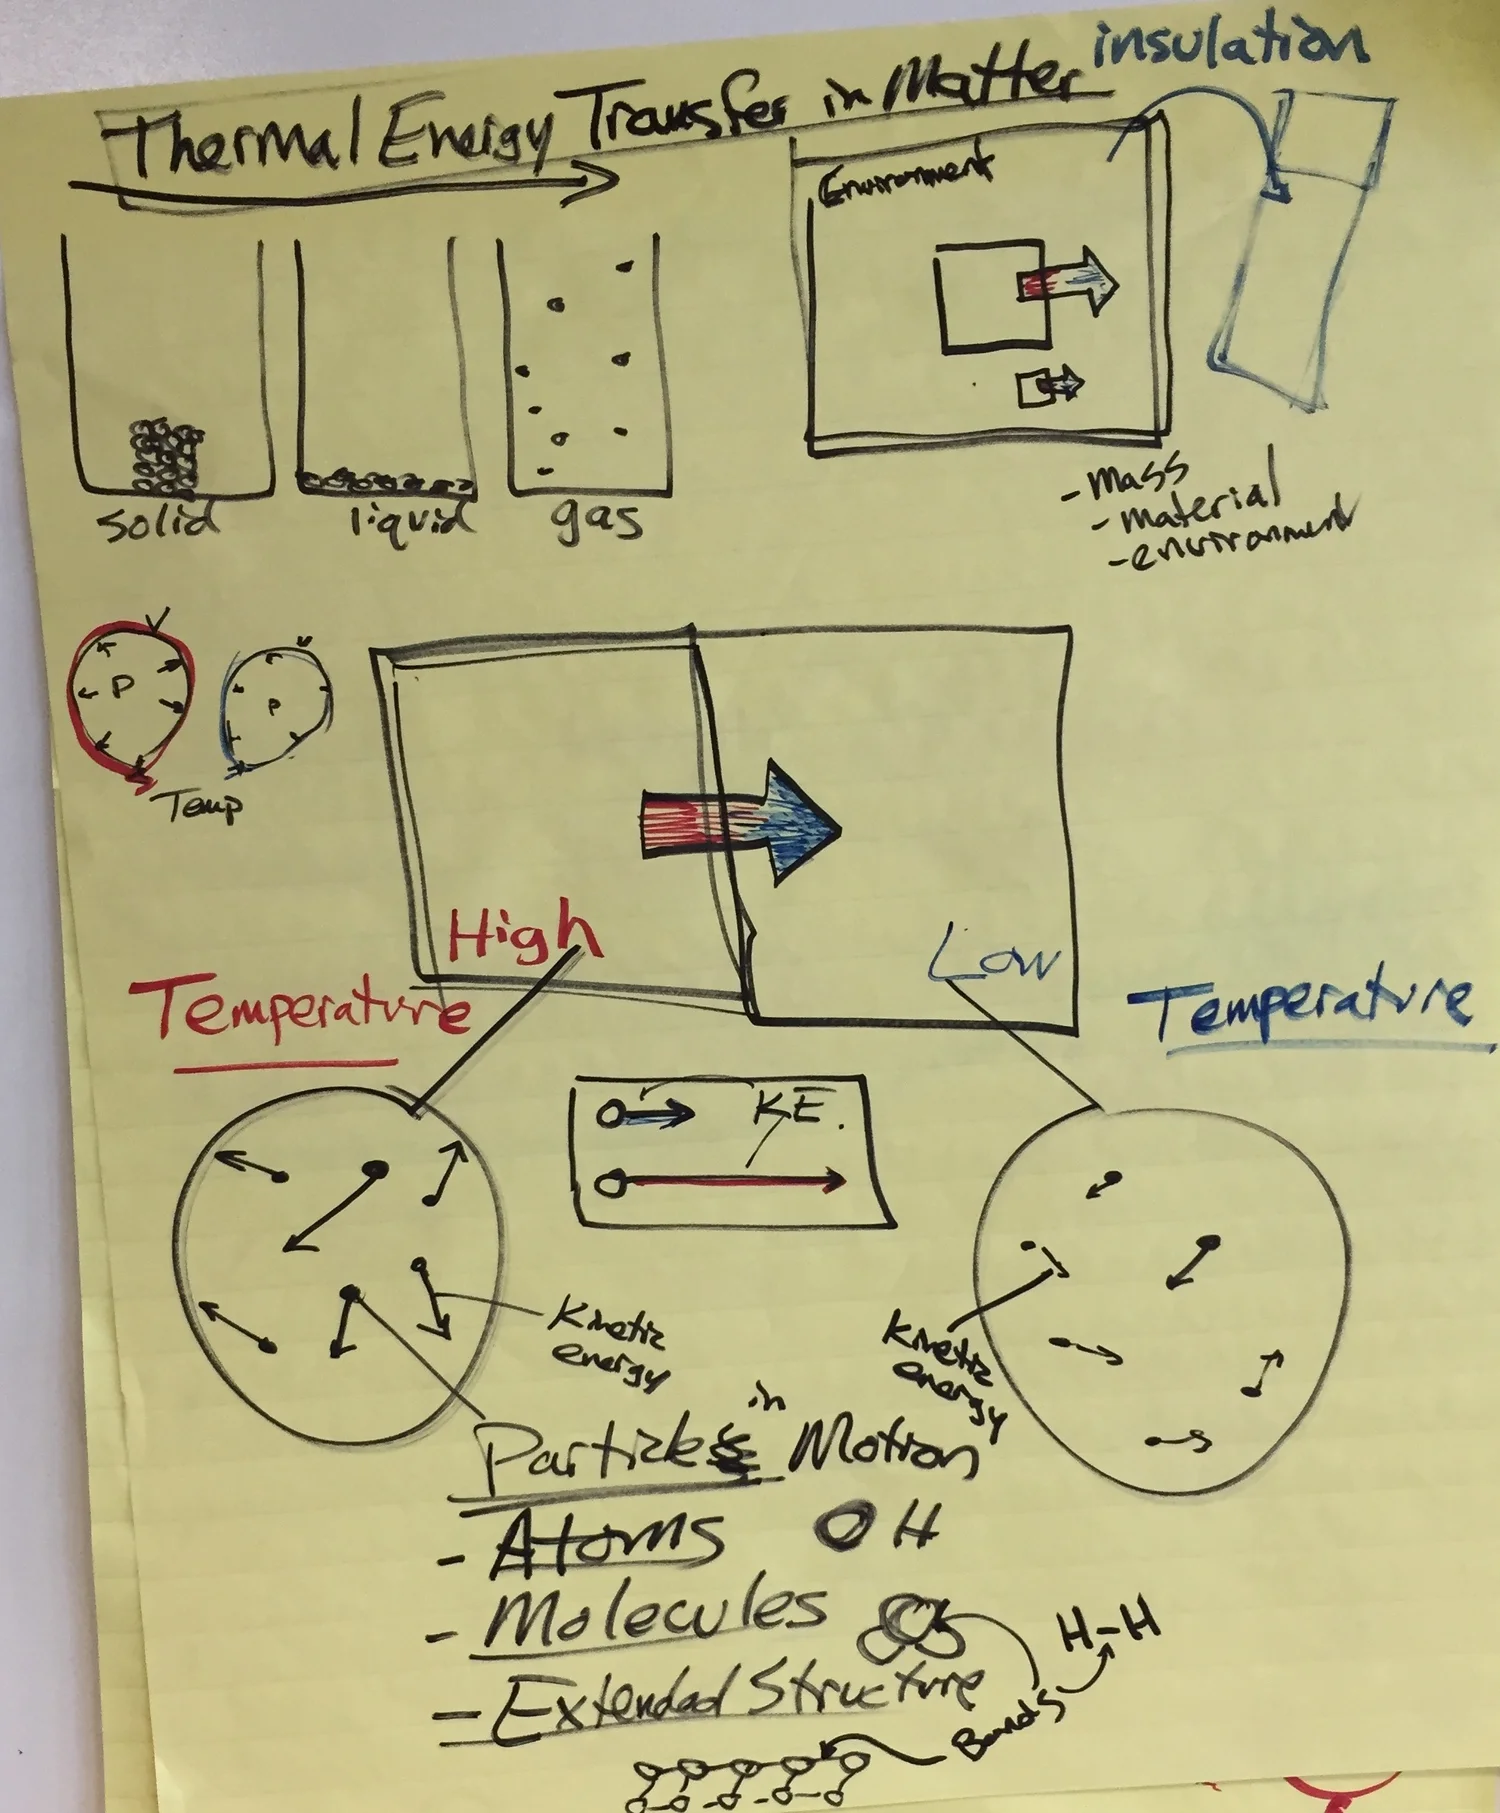 insulation
Thermal Energy Transfer in Matter
Environment
solid
liquid
gas
- mass
- material
- environment
V
P
v
P
Temp
High
Temperature
Low
Temperature
KE.
Kinetic
energy
Kinetic
energy
Particles in Motion
- Atoms H
- Molecules
H-H
- Extended Structure
Bonds